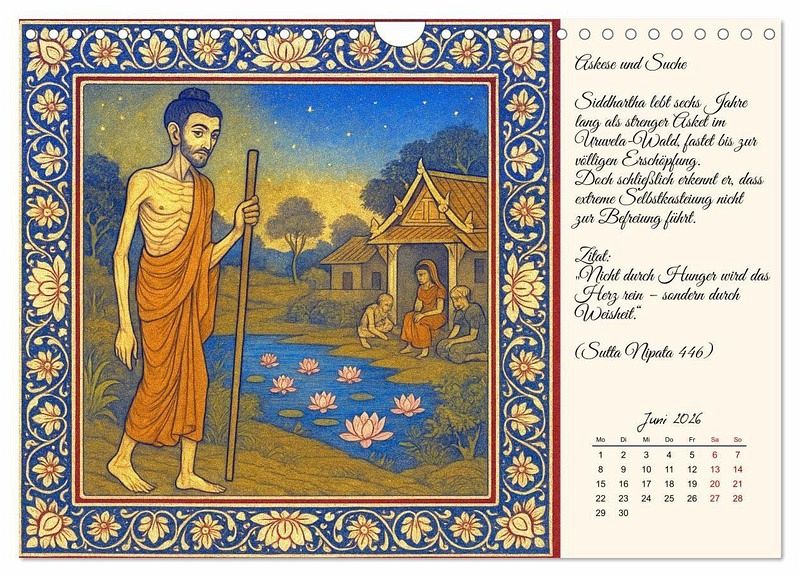 Askese und Suche
Siddhartha lebt sechs Jahre
lang als strenger Asket im
Uruvela-Wald, fastet bis zur
völligen Erschöpfung.
Doch schließlich erkennt er, dass
extreme Selbstkasteiung nicht
zur Befreiung führt.
Zitat:
„Nicht durch Hunger wird das
Herz rein – sondern durch
Weisheit.“
(Sutta Nipata 446)
Juni 2026
Mo Di Mi Do Fr Sa So
1 2 3 4 5 6 7
8 9 10 11 12 13 14
15 16 17 18 19 20 21
22 23 24 25 26 27 28
29 30